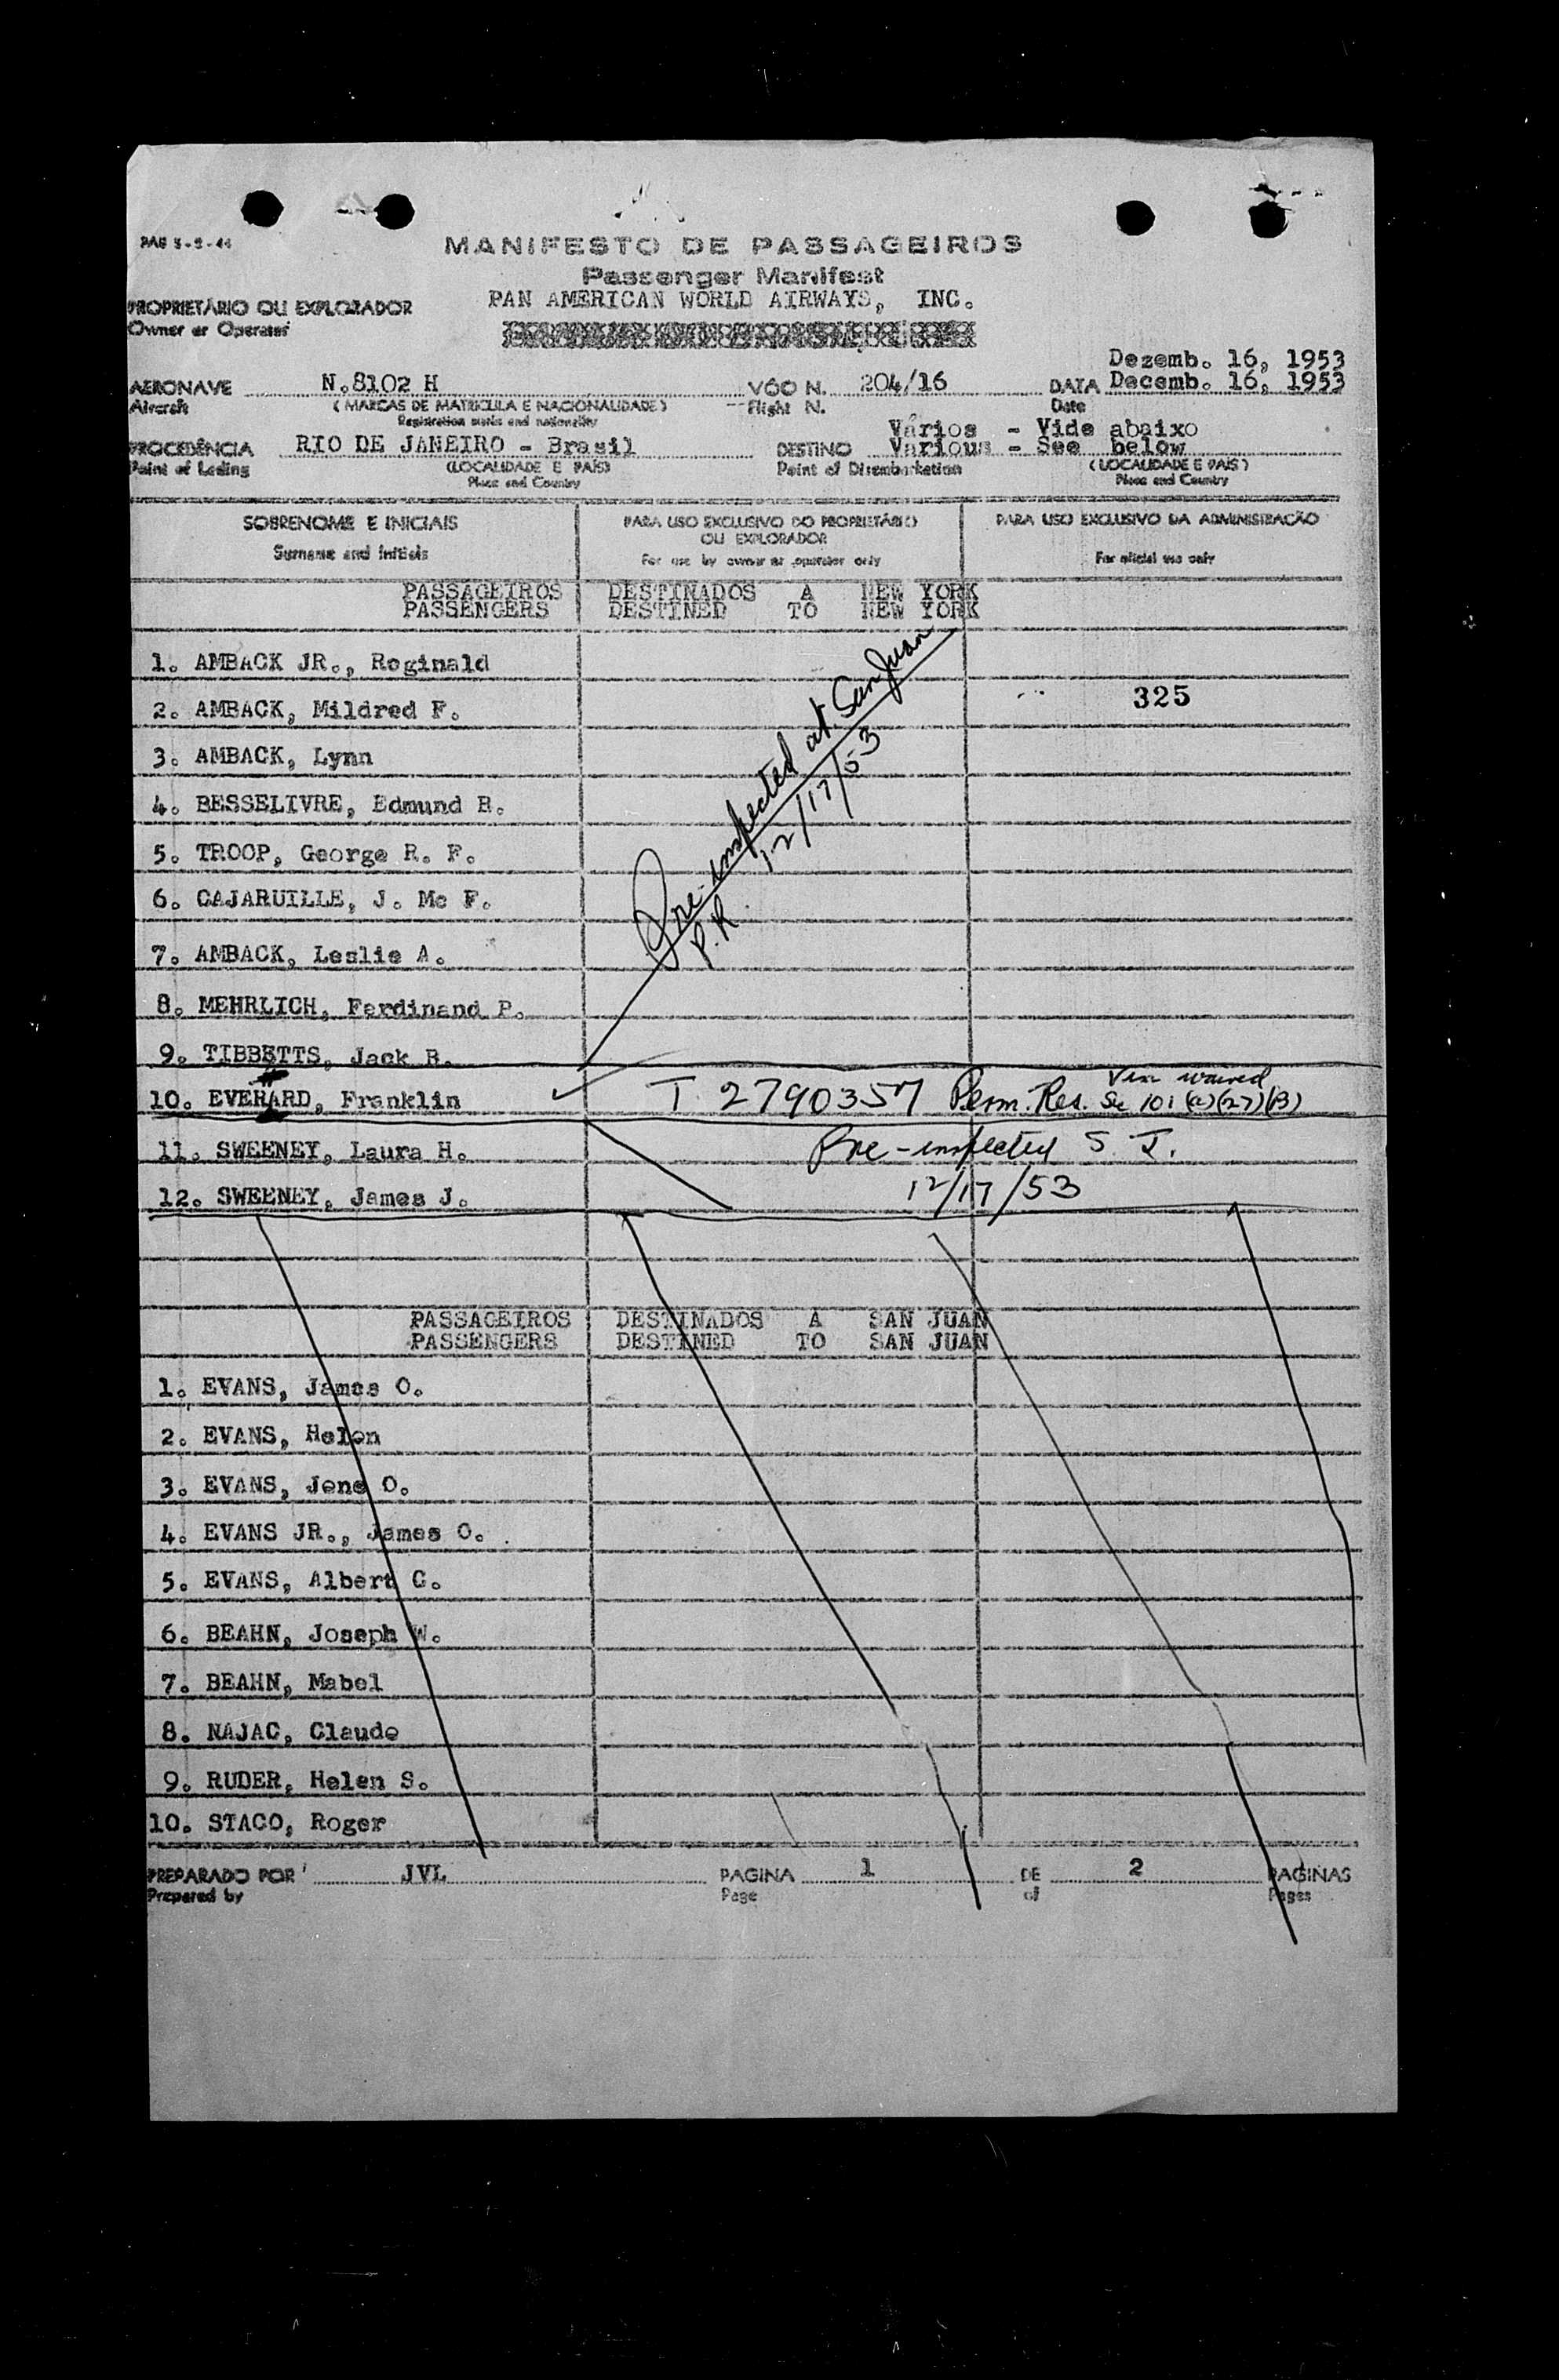 PAB 5-2-44
MANIFESTO DE PASSAGEIROS
Passenger Manifest
PROPRIETÁRIO OU EXPLORADOR PAN AMERICAN WORLD AIRWAYS, INC.
Owner or Operator
Dezemb. 16, 1953
AERONAVE N.8102 H VÔO N. 204/16 DATA Decemb. 16, 1953
Aircraft (MARCAS DE MATRICULA E NACIONALIDADE) Flight N. Date
Registration marks and nationality
Vários - Vide abaixo
PROCEDÊNCIA RIO DE JANEIRO - Brasil DESTINO Various - See below
Point of Lading (LOCALIDADE E PAÍS) Point of Disembarkation (LOCALIDADE E PAÍS)
Place and Country Place and Country
SOBRENOME E INICIAIS PARA USO EXCLUSIVO DO PROPRIETÁRIO PARA USO EXCLUSIVO DA ADMINISTRAÇÃO
OU EXPLORADOR
Surname and initials For use by owner or operator only For oficial use only
PASSAGEIROS DESTINADOS A NEW YORK
PASSENGERS DESTINED TO NEW YORK
1. AMBACK JR., Reginald
2. AMBACK, Mildred F. 325
3. AMBACK, Lynn
4. BESSELIVRE, Edmund B.
5. TROOP, George R. F.
6. CAJARUILLE, J. Mc F.
7. AMBACK, Leslie A.
Pre-inspected at San Juan
P.R. 12/17/53
8. MEHRLICH, Ferdinand P.
9. TIBBETTS, Jack B.
Visa waived
10. EVERARD, Franklin ✓ T 2790357 Perm. Res. Sec 101 (a)(27)(B)
11. SWEENEY, Laura H. Pre-inspected S. J.
12. SWEENEY, James J. 12/17/53
PASSAGEIROS DESTINADOS A SAN JUAN
PASSENGERS DESTINED TO SAN JUAN
1. EVANS, James O.
2. EVANS, Helen
3. EVANS, Jene O.
4. EVANS JR., James O.
5. EVANS, Albert C.
6. BEAHN, Joseph W.
7. BEAHN, Mabel
8. NAJAC, Claude
9. RUDER, Helen S.
10. STACO, Roger
PREPARADO POR JVL PAGINA 1 DE 2 PAGINAS
Prepared by Page of Pages